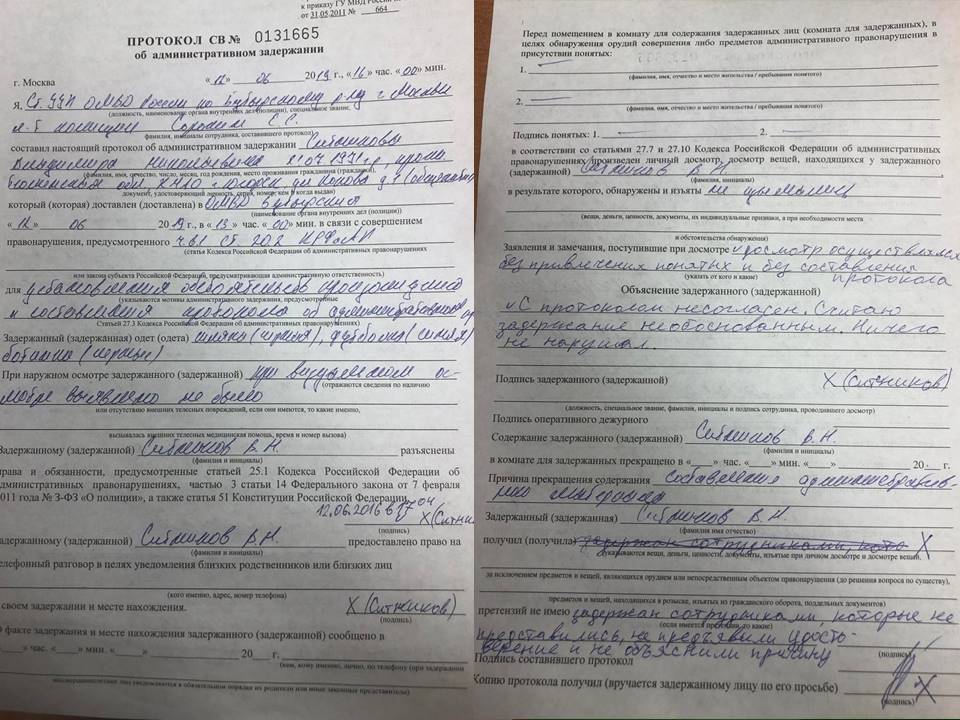 к приказу ГУ МВД России
от 31.05.2011 № 664
ПРОТОКОЛ СВ № 0131665
об административном задержании
г. Москва «12» 06 2019 г., «16» час. «00» мин.
Я, Ст. УУП ОМВД России по Бутырскому р-ну г. Москвы
(должность, наименование органа внутренних дел (полиции), специальное звание,
л-т полиции Сорокин Е.С.
фамилия, инициалы сотрудника, составившего протокол)
составил настоящий протокол об административном задержании Ситникова
Владимира Николаевича 21.07.1971 г.р., прож.
(фамилия, имя, отчество, число, месяц, год рождения, место проживания гражданина (гражданки),
Тюменская обл ХМАО г. Югорск ул Попова д.1
документ, удостоверяющий личность, серия, номер, кем и когда выдан)
который (которая) доставлен (доставлена) в ОМВД Бутырский
(наименование органа внутренних дел (полиции))
«12» 06 2019 г., в «15» час. «00» мин. в связи с совершением
правонарушения, предусмотренного ч. 6.1 ст. 20.2 КРФоАП
(статья Кодекса Российской Федерации об административных правонарушениях
или закона субъекта Российской Федерации, предусматривающая административную ответственность)
для установления обстоятельств
(указываются мотивы административного задержания, предусмотренные
и составления протокола об административном
Статьей 27.3 Кодекса Российской Федерации об административных правонарушениях)
Задержанный (задержанная) одет (одета) футболка (синяя)
ботинки (черные)
При наружном осмотре задержанного (задержанной) при визуальном ос-
(отражаются сведения по наличию
мотре выявлено не было
или отсутствию внешних телесных повреждений, если они имеются, то какие именно,
вызывалась внешних телесных медицинская помощь, время и номер вызова)
Задержанному (задержанной) Ситников В.Н. разъяснены
(фамилия и инициалы)
права и обязанности, предусмотренные статьей 25.1 Кодекса Российской Федерации об
административных правонарушениях, частью 3 статьи 14 Федерального закона от 7 февраля
2011 года № 3-ФЗ «О полиции», а также статья 51 Конституции Российской Федерации
12.06.2016 в 17 04 X (Ситни
(подпись)
Задержанному (задержанной) Ситников В.Н. предоставлено право на
(фамилия и инициалы)
телефонный разговор в целях уведомления близких родственников или близких лиц
(кого именно, адрес, номер телефона)
о своем задержании и месте нахождения. X (Ситников)
(подпись)
О факте задержания и месте нахождения задержанного (задержанной) сообщено в
«___» час. «___» мин. «___» 20___ г.
(кем, кому именно, лично, по телефону (при задержании
несовершеннолетних уведомляются в обязательном порядке их родители или иные законные представители)
Перед помещением в комнату для содержания задержанных лиц (комната для задержанных), в
целях обнаружения орудий совершения либо предметов административного правонарушения в
присутствии понятых:
1.
(фамилия, имя, отчество и место жительства / пребывания понятого)
2.
(фамилия, имя, отчество и место жительства / пребывания понятого)
Подпись понятых: 1. 2.
в соответствии со статьями 27.7 и 27.10 Кодекса Российской Федерации об административных
правонарушениях произведен личный досмотр, досмотр вещей, находящихся у задержанного
(задержанной) Ситников В.Н.
(фамилия, инициалы)
в результате которого, обнаружены и изъяты не изымались
(вещи, деньги, ценности, документы, их индивидуальные признаки, а при необходимости места
и обстоятельства обнаружения)
Заявления и замечания, поступившие при досмотре «досмотр осуществлялся
без привлечения понятых и без составления
(указать от кого и какие) протокола
Объяснение задержанного (задержанной)
«С протоколом несогласен. Считаю
задержание необоснованным. Ничего
не нарушал.
Подпись задержанного (задержанной) X (Ситников)
(должность, специальное звание, фамилия, инициалы и подпись сотрудника, проводившего досмотр)
Подпись оперативного дежурного
Содержание задержанного (задержанной) Ситников В.Н.
(фамилия и инициалы)
в комнате для задержанных прекращено в «___» час. «___» мин. «___» 20___ г.
Причина прекращения содержания составления административ-
ного материала
Задержанный (задержанная) Ситников В.Н.
(фамилия имя отчество)
получил (получила) задержан сотрудниками, кото X
(указываются вещи, деньги, ценности, документы, изъятые при личном досмотре и досмотре вещей,
за исключением предметов и вещей, являющихся орудием или непосредственным объектом правонарушения (до решения вопроса по существу),
предметов и вещей, находящихся в розыске, изъятых из гражданского оборота, поддельных документов)
претензий не имею задержан сотрудниками, которые не
(если имеется претензии, то какие)
представились, не предъявили удосто-
верение и не объяснили причину
(подпись)
Подпись составившего протокол
Копию протокола получил (вручается задержанному лицу по его просьбе) X
(подпись)